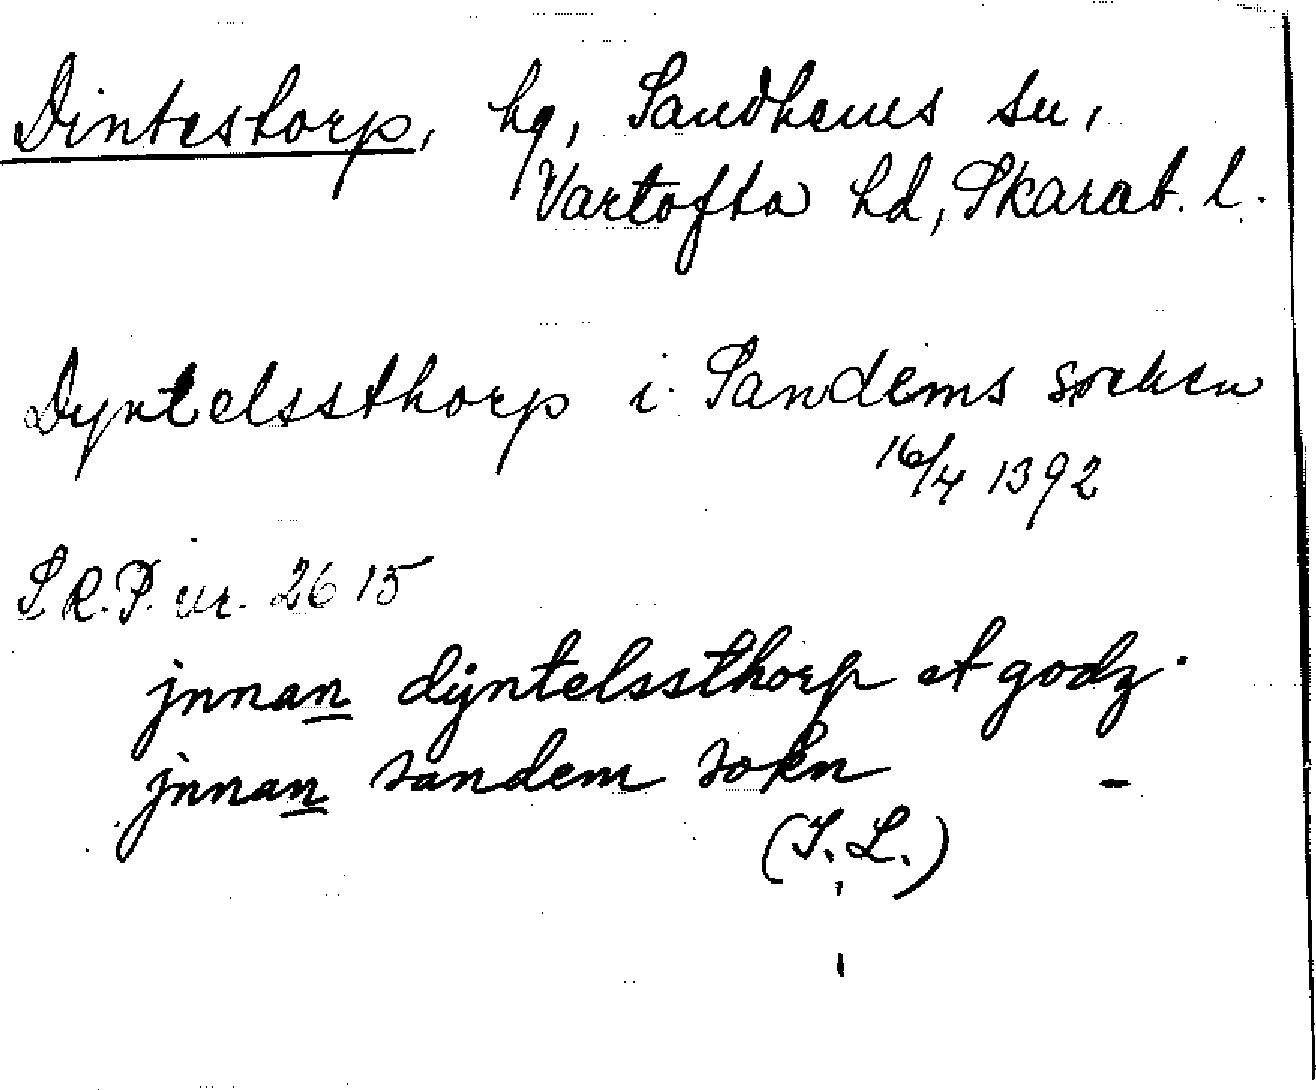 Dintestorp, hg, Sandhems sn,
Vartofta hd, Skarab. l.
Dyntelssthorp i Sandems socken
16/4 1392
S R.P. nr. 2615
jnnan dyntelssthorp et godz
jnnan sandem sokn -
(I. L.)